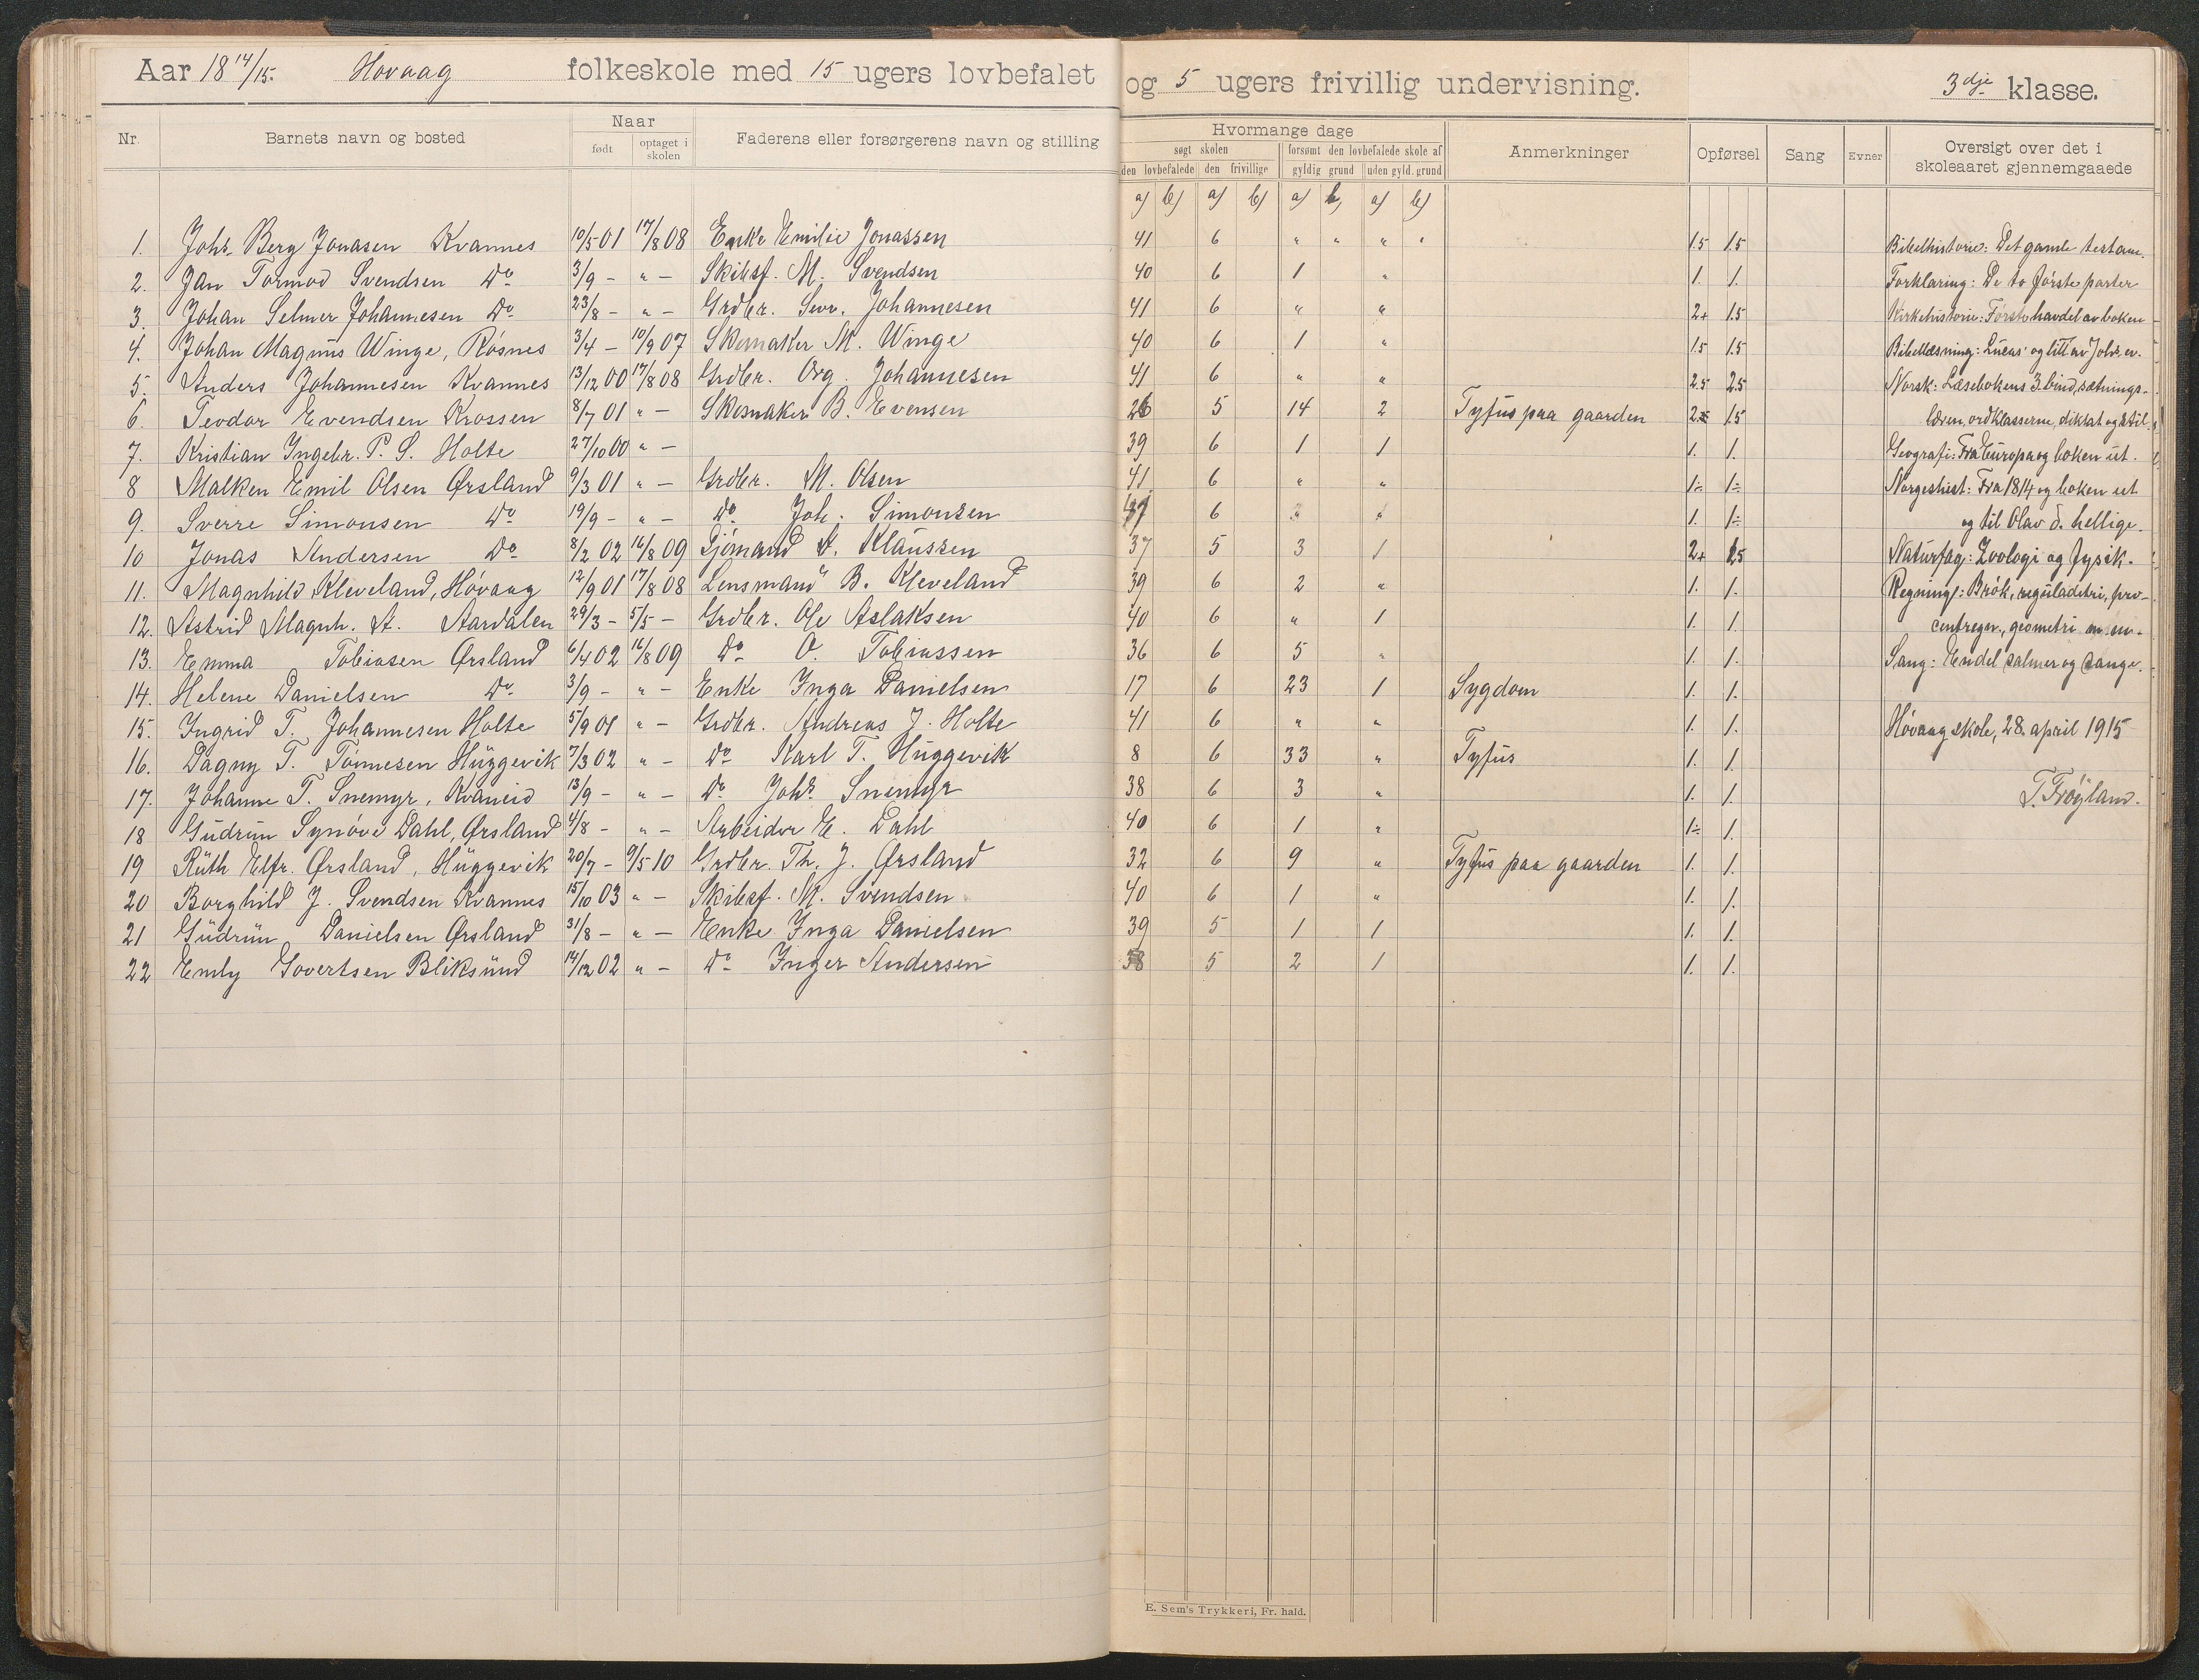 Aar 18 14/15. Høvaag folkeskole med 15 ugers lovbefalet og 5 ugers frivillig undervisning. 3dje klasse.
Nr. Barnets navn og bosted Naar født optaget i skolen Faderens eller forsørgerens navn og stilling Hvormange dage søgt skolen den lovbefalede den frivillige forsømt den lovbefalede skole af gyldig grund uden gyld. grund Anmerkninger Opførsel Sang Evner Oversigt over det i skoleaaret gjennemgaaede
a) b) a) b) a) b) a) b)
1. Johs. Berg Jonasen Kvannes 10/5 01 17/8 08 Enke Emilie Jonassen 41 6 " " " " 1.5 1.5 Bibelhistorie: Det gamle testam.
2. Jan Tormod Svendsen Do 3/9 - " - Skibsf. M. Svendsen 40 6 1 " 1. 1. Forklaring: De to første parter
3. Johan Selmer Johannesen Do 23/8 - " - Grdbr. Sev. Johannesen 41 6 " " 2+ 1.5 Kirkehistorie: Første havdel av boken
4. Johan Magnus Winge, Røsnes 3/4 - 10/9 07 Skomaker M. Winge 40 6 1 " 1.5 1.5 Bibellæsning: Lucas' og litt av Johs. ev.
5. Anders Johannesen Kvannes 13/12 00 17/8 08 Grdbr. Org. Johannesen 41 6 " " 2.5 2.5 Norsk: Læsebokens 3. bind, sætnings-
6. Teodor Evendsen Krossen 8/7 01 " - Skomaker B. Evensen 26 5 14 2 Tyfus paa gaarden 1.5 læren, ordklasserne, diktat og stil.
7. Kristian Ingebr. P. S. Holte 27/10 00 " - 39 6 1 1 1. 1. Geografi: Fra Europa og boken ut.
8 Malken Emil Olsen Ørsland 9/3 01 " - Grdbr. M. Olsen 41 6 " " 1÷ 1÷ Norgeshist: Fra 1814 og boken ut
9. Sverre Simonsen Do 19/9 - " - Do Joh. Simonsen 6 " 1. 1÷ og til Olav d. hellige.
10 Jonas Andersen Do 8/2 02 16/8 09 Sjømand A. Klaussen 37 5 3 1 2+ 1.5 Naturfag: Zoologi og fysik.
11. Magnhild Kleveland, Høvaag 12/9 01 17/8 08 Lensmand B. Kleveland 39 6 2 " 1. 1. Regning: Brøk, reguladetri, pro-
12. Astrid Magnh. A. Aardalen 29/3 - 5/5 - Grdbr. Ole Aslaksen 40 6 " 1 1. 1. centregn., geometri m.m.
13. Emma Tobiasen Ørsland 6/4 02 16/8 09 Do O. Tobiassen 36 6 5 " 1. 1. Sang: Endel salmer og sange.
14. Helene Danielsen Do 3/9 - " - Enke Inga Danielsen 17 6 23 1 Sygdom 1. 1.
15. Ingrid T. Johannesen Holte 5/9 01 " - Grdbr. Andreas J. Holte 41 6 " " 1. 1. Høvaag skole, 28. april 1915
16. Dagny T. Tønnesen Huggevik 7/3 02 " - Do Karl T. Huggevik 8 6 33 " Tyfus 1. 1.
17. Johanne T. Snemyr, Kvaneid 13/9 - " - Do Johs. Snemyr 38 6 3 " 1. 1. T. Frøyland.
18 Gudrun Synøve Dahl, Ørsland 4/8 - " - Arbeider E. Dahl 40 6 1 " 1÷ 1.
19 Ruth Elfr. Ørsland, Huggevik 20/7 - 9/5 10 Grdbr. Th. J. Ørsland 32 6 9 " Tyfus paa gaarden 1. 1.
20 Borghild J. Svendsen Kvannes 15/10 03 " - Skibsf. M. Svendsen 40 6 1 " 1. 1.
21 Gudrun Danielsen Ørsland 31/8 - " - Enke Inga Danielsen 39 5 1 1 1. 1.
22 Emly Govertsen Bliksund 14/12 02 " - Do Inger Andersen 38 5 2 1 1. 1.
E. Sem's Trykkeri, Fr. hald.